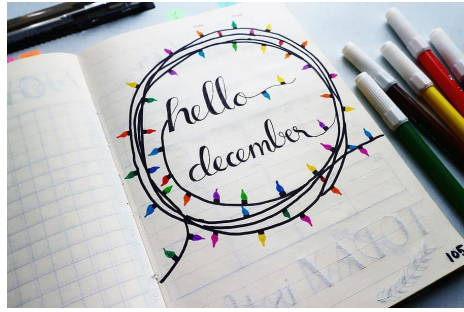 hello
december
105